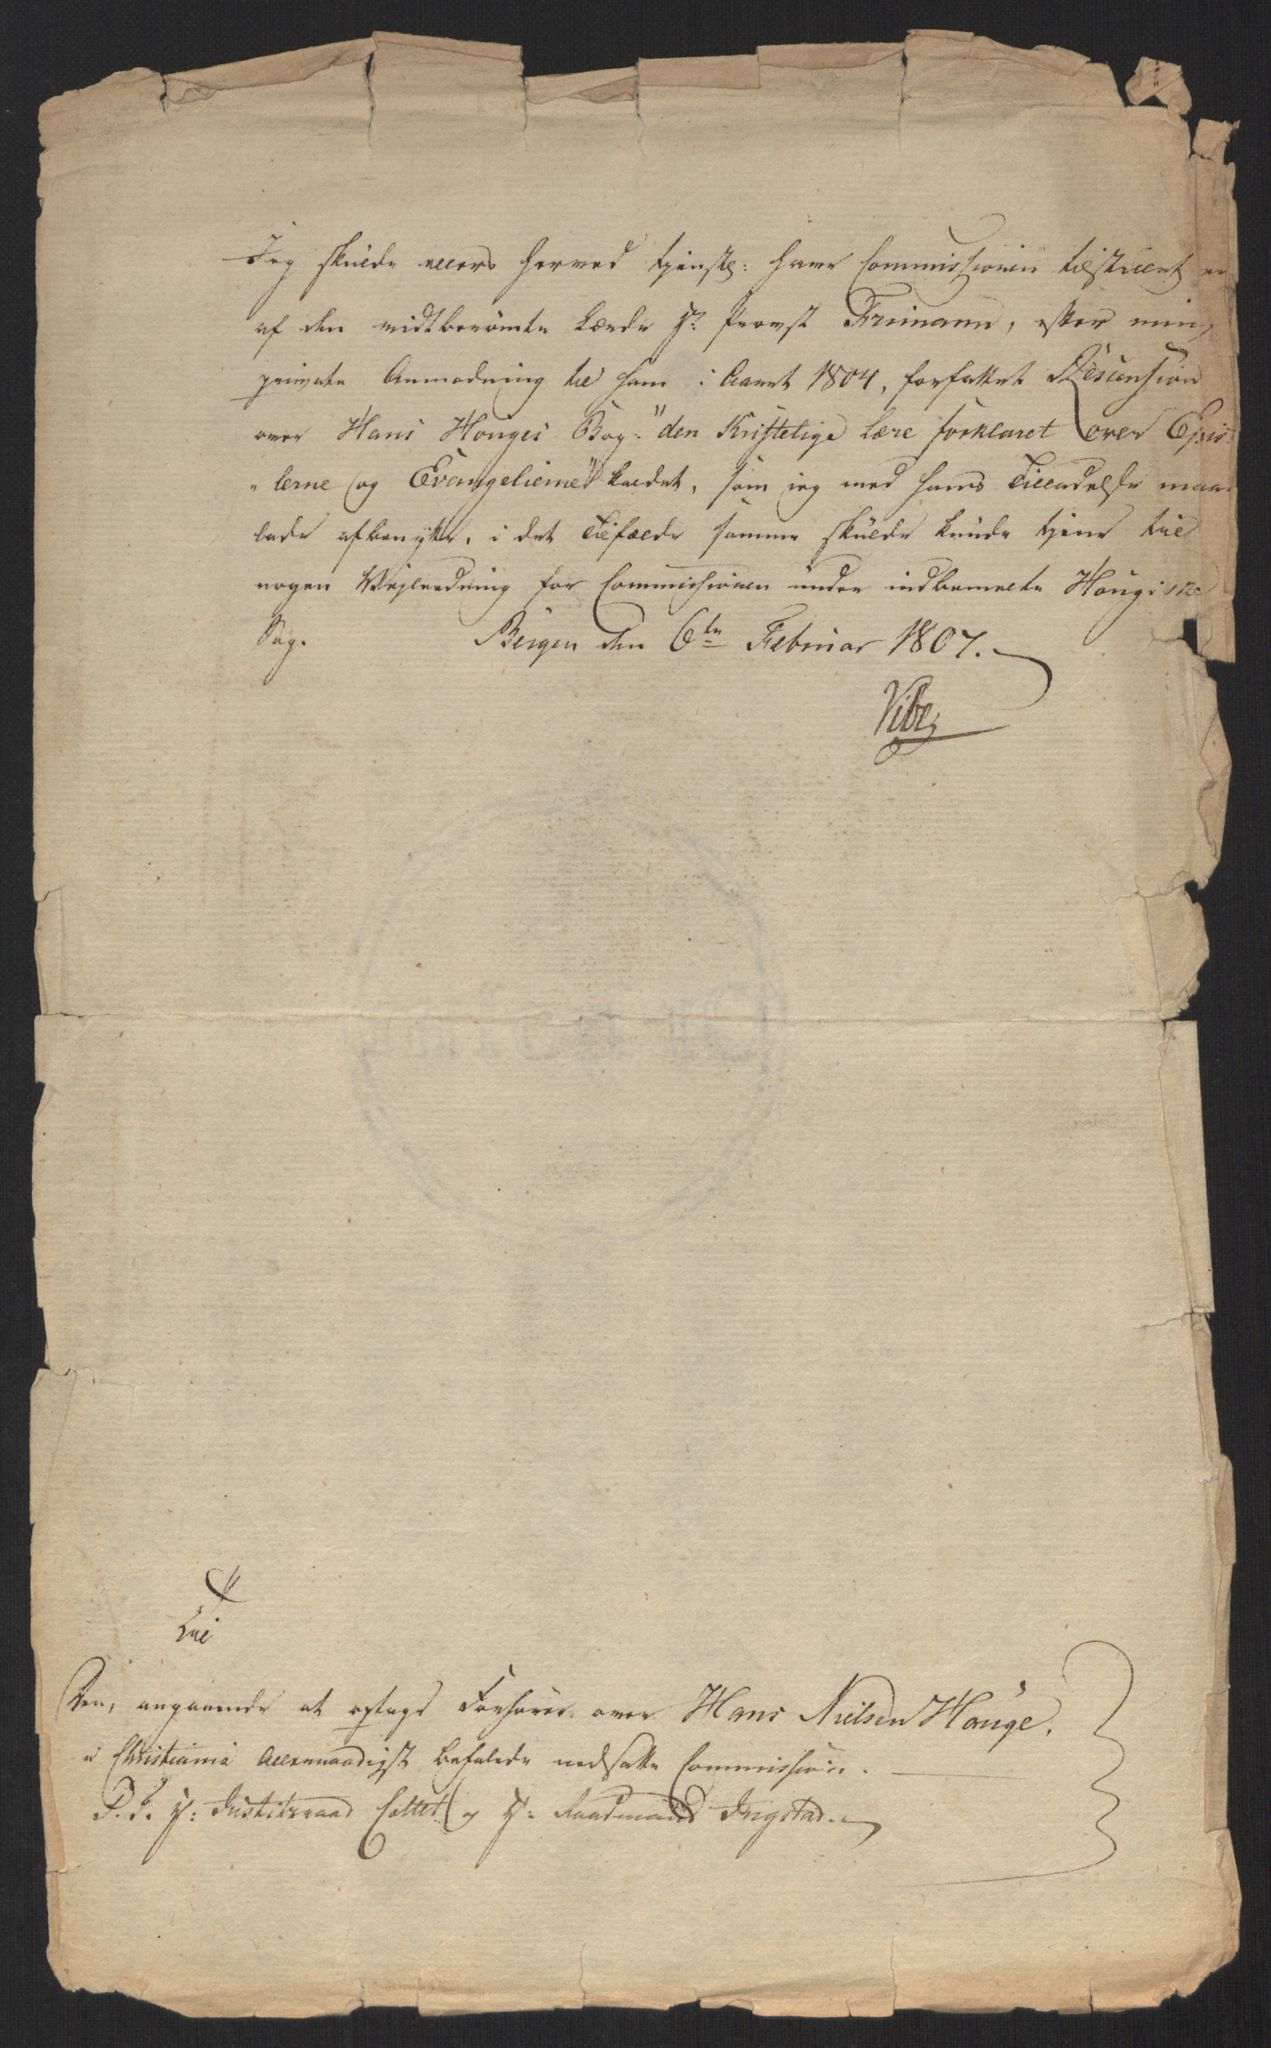 Jeg skulde ellers herved tjenstl: have Commissionen tilstillet en
af den vidtberømte Lærde Hr Provst Frimann, efter min
private Anmodning til ham i Aaret 1804, forfattet Rescension
over Hans Houges Bog: "den Kristelige Lære forklaret over Epis
"lerne og Evangelierne" kaldet, som jeg med hans Tilladelse maae
lade afbenytte, i det Tilfælde samme skulde kunde tjene til
nogen Vejledning for Commissionen under indbemelte Hougiske
Sag.
Bergen den 6te Februar 1807.
Vibe
Til
Den, angaaende at optage Forhører over Hans Nielsen Houge,
i Christiania Allernaadigst befalede nedsatte Commission.
P. T. Hr: Justitsraad Collet og Hr: Raadmand Ingstad.